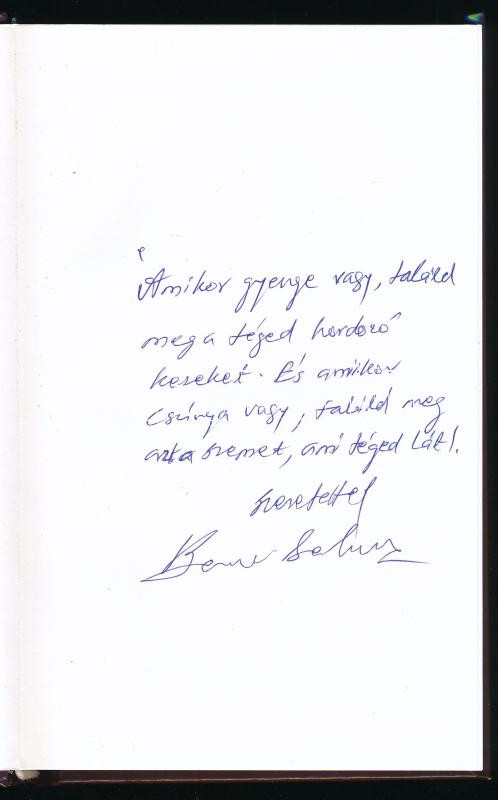 Amikor gyenge vagy, találd
meg a téged hordozó
kezeket. És amikor
csúnya vagy, találd meg
azt a szemet, ami téged lát!
szeretettel